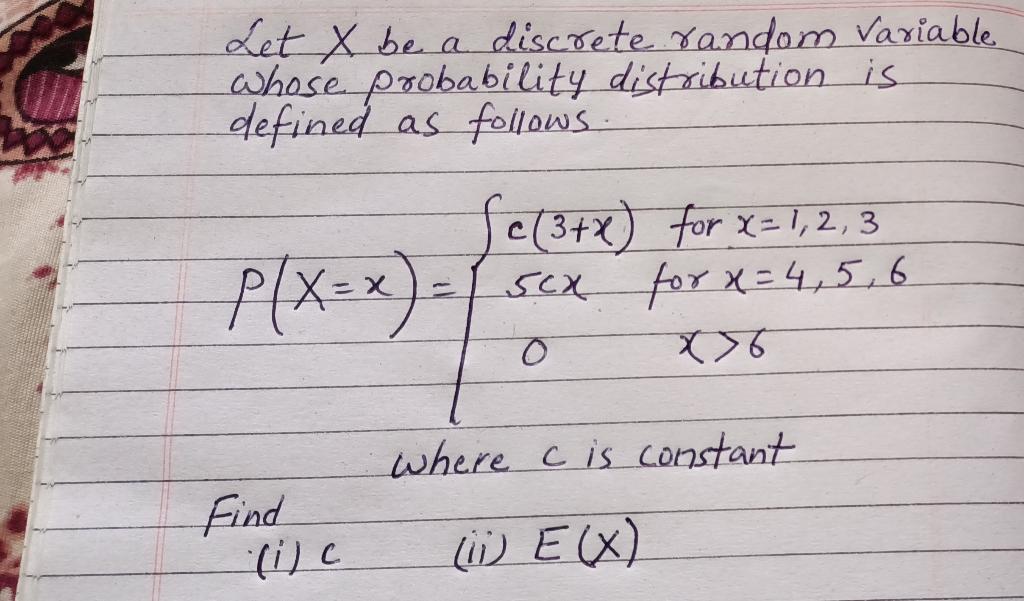 Let X be a discrete random Variable
whose probability distribution is
defined as follows.
P(X=x) = { c(3+x) for x=1,2,3
5cx for x=4,5,6
0 x>6
where c is constant
Find
(i) c (ii) E(X)